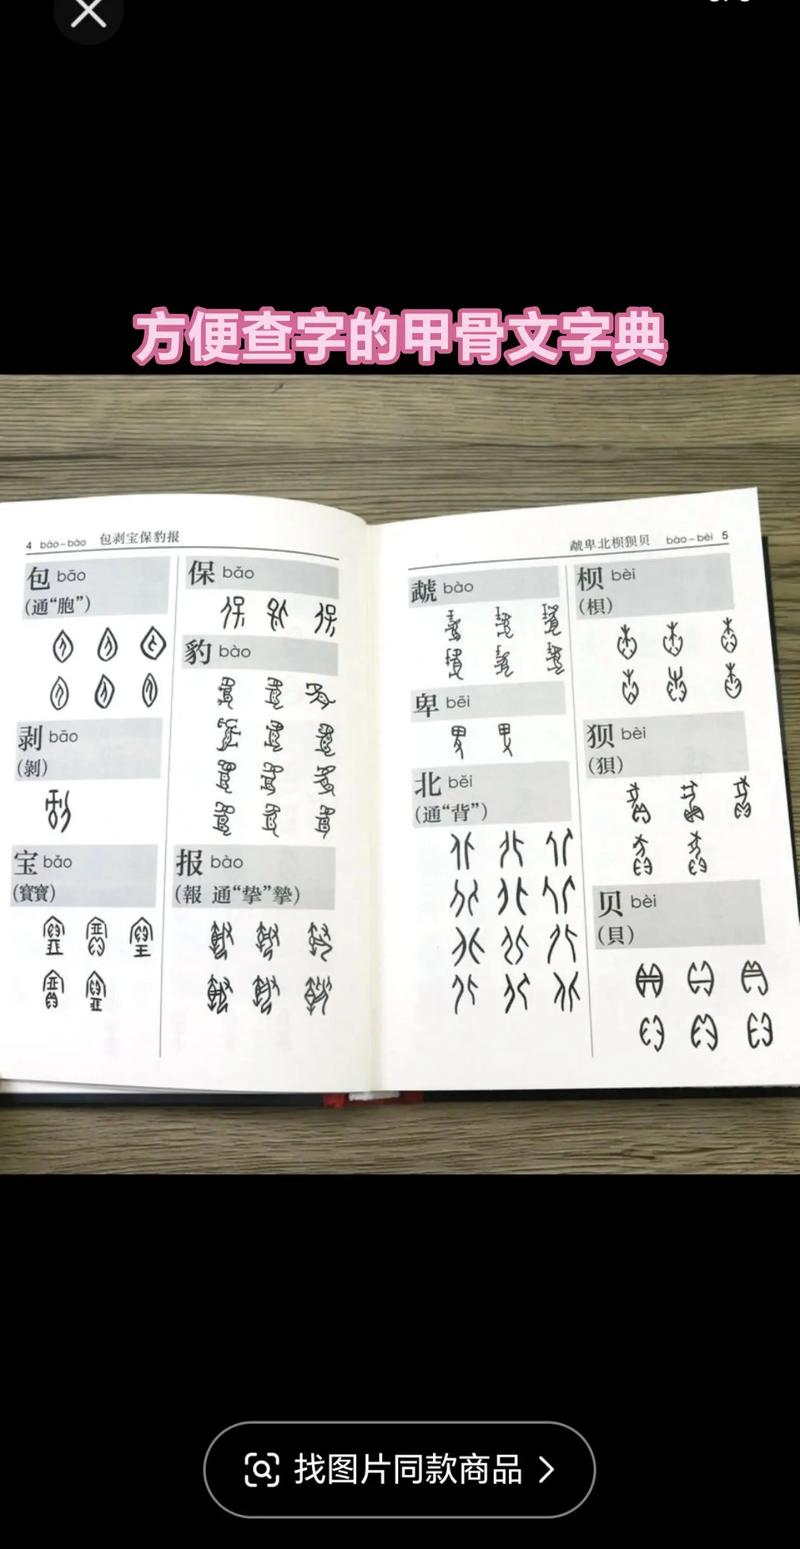 方便查字的甲骨文字典
4 bāo-bào 包剥宝保豹报
包 bāo
(通“胞”)
剥 bāo
(剝)
宝 bǎo
(寶寳)
保 bǎo
豹 bào
报 bào
(報 通“挚”摯)
卑北枫狈贝 bào-bèi 5
bào
卑 bēi
北 běi
(通“背”)
bèi
狈 bèi
(狽)
贝 bèi
(貝)
找图片同款商品